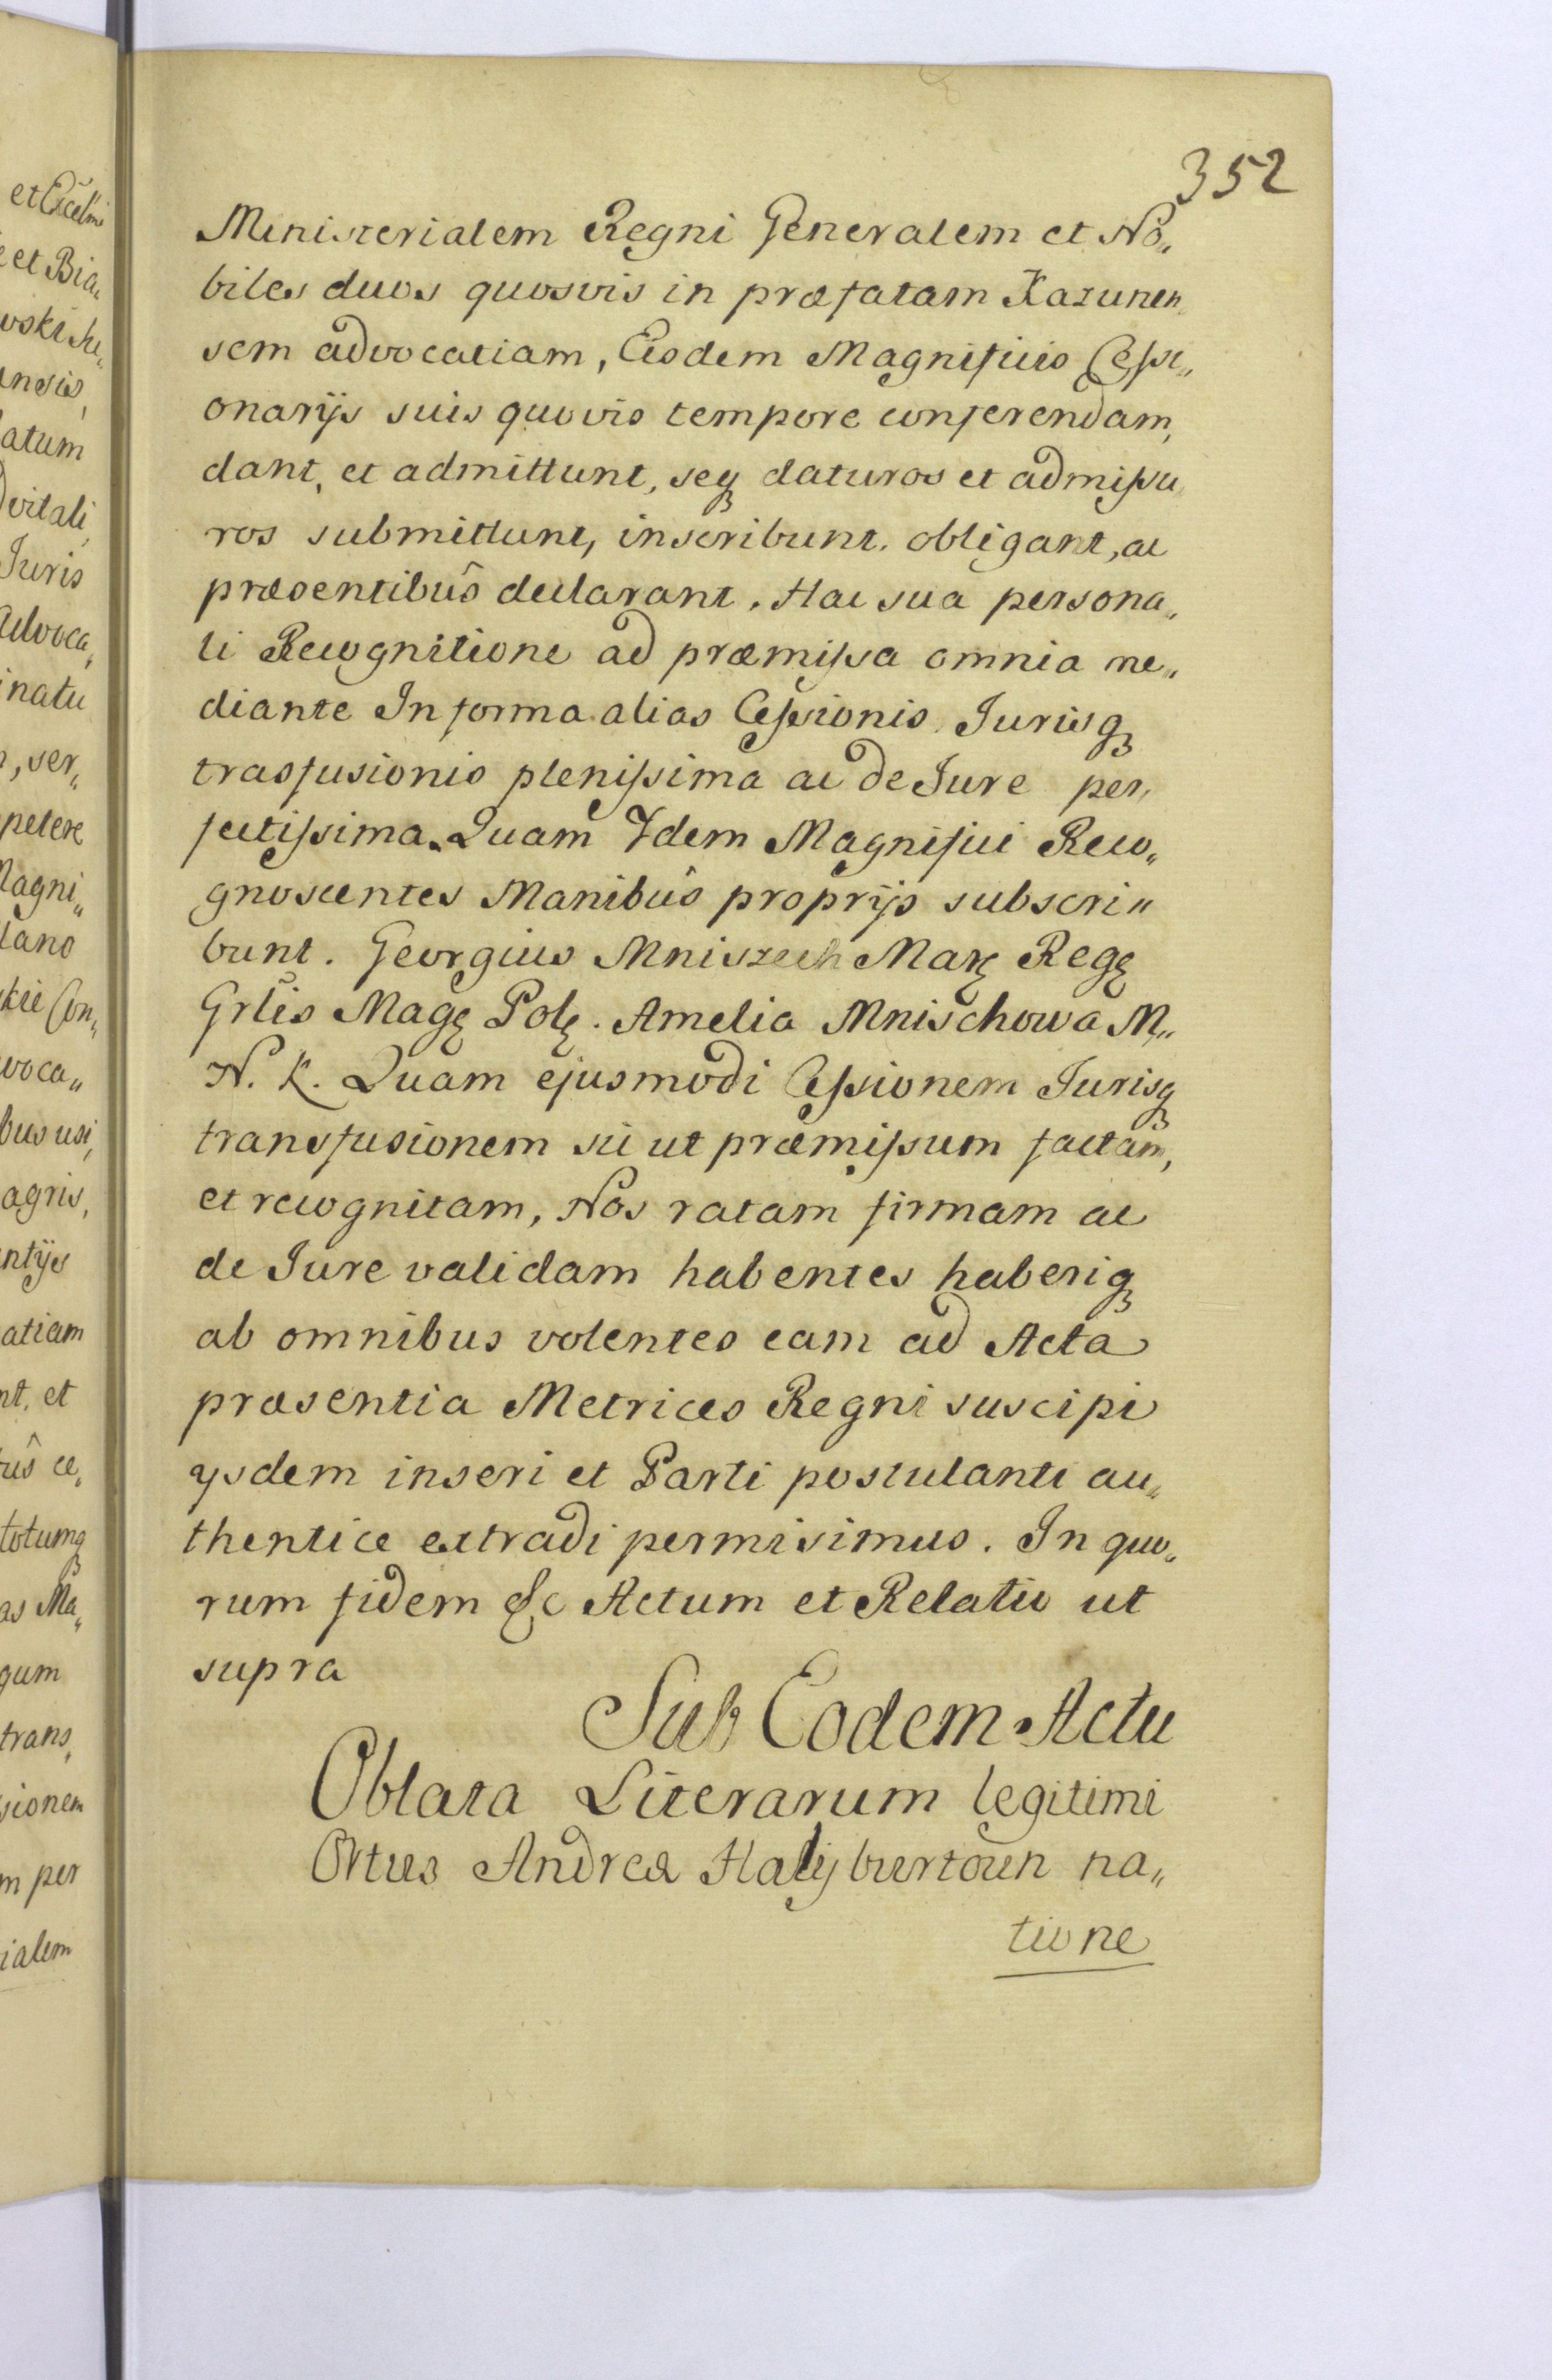 352
Ministerialem Regni Generalem et No„
biles duos quosvis in præfatam Kazunen
sem advocatiam, Eisdem Magnificis Cessi„
onarijs suis quovis tempore conferendam,
dant, et admittunt, seq daturos et admissu„
ros submittunt, inscribunt, obligant, ac
præsentibus declarant. Hac sua persona„
li Recognitione ad præmissa omnia me„
diante In forma alias Cessionis Jurisq
trasfusionis plenissima ac de Jure per„
fectissima. Quam Idem Magnifici Reco„
gnoscentes Manibus proprijs subscri„
bunt. Georgius Mniszech Marę Regę
Grlis Magę Polę. Amelia Mnischowa M„
N. K. Quam ejusmodi Cessionem Jurisq
transfusionem sic ut præmissum factam,
et recognitam, Nos ratam firmam ac
de Jure validam habentes haberiq
ab omnibus volentes eam ad Acta
præsentia Metrices Regni suscipi
ijsdem inseri et Parti postulanti au„
thentice extradi permisimus. In quo„
rum fidem &c Actum et Relatio ut
supra
Sub Eodem Actu
Oblata Literarum legitimi
Ortus Andreæ Halijburtoun na„
tione
et Excelmi
et Bia„
inatu
petere
Magni„
voca„
agris,
atiam
nt, et
totumq
as Ma„
trans„
m per